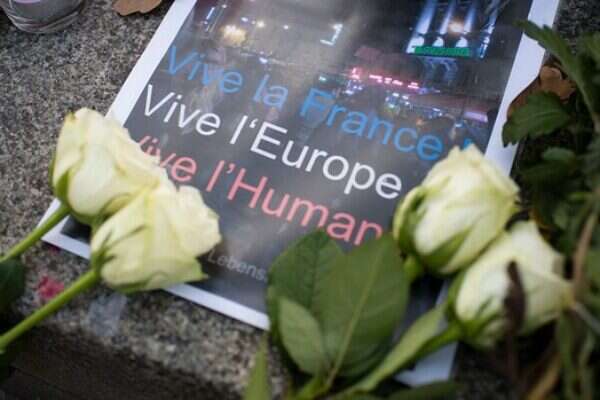 Vive la France !
Vive l'Europe
Vive l'Human
Lebens